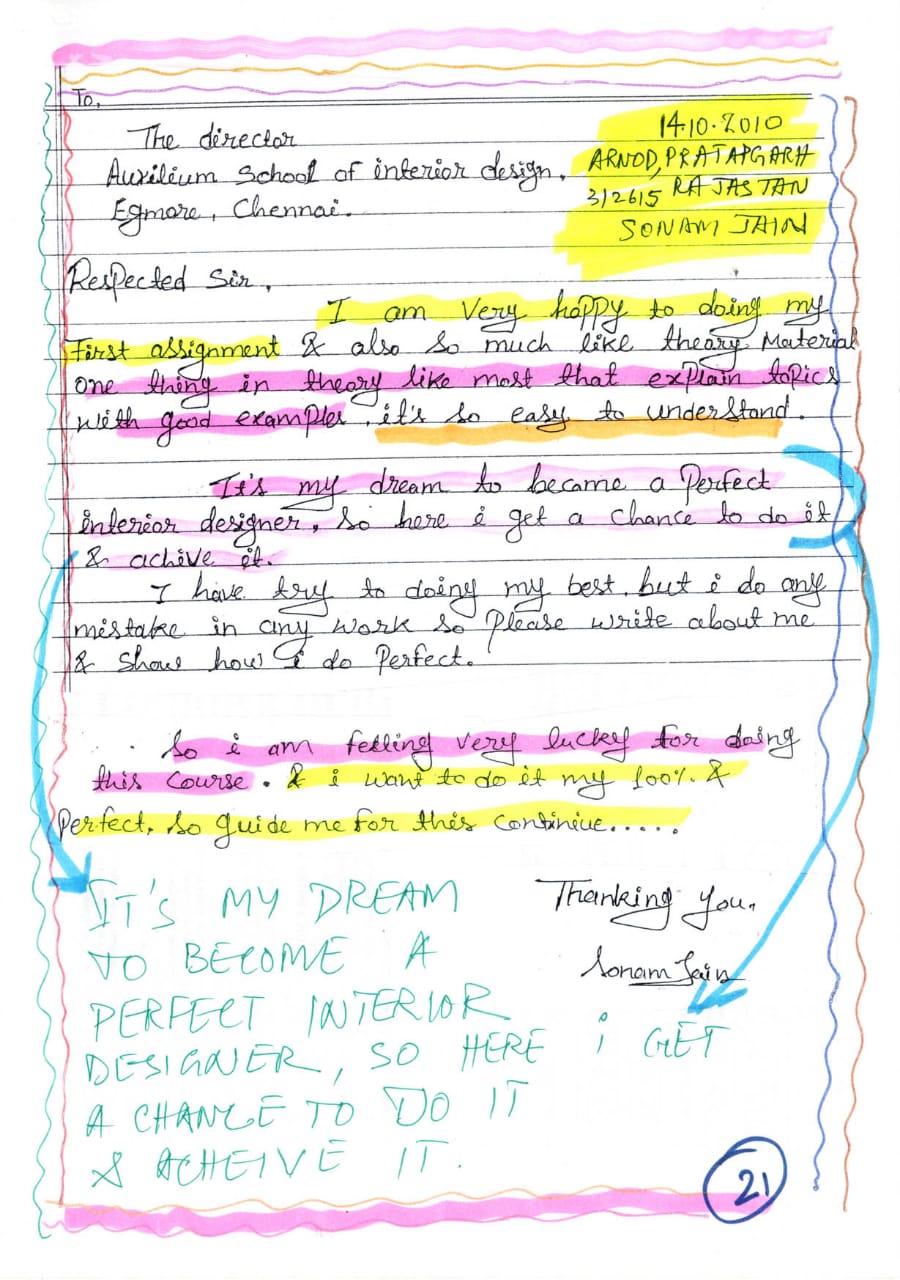 To,
The director
Auxilium School of interior design.
Egmore, Chennai.
14.10.2010
ARNOD, PRATAPGARH
312615 RAJASTAN
SONAM JAIN
Respected Sir,
I am very happy to doing my
First assignment & also so much like theory Material
one thing in theory like most that explain topics
with good examples, it's so easy to understand.
It's my dream to became a Perfect
interior designer, so here i get a chance to do it
& achive it.
I have try to doing my best, but i do any
mistake in any work so Please write about me
& show how i do Perfect.
So i am felling very lucky for doing
this course. & i want to do it my 100% &
Perfect, so guide me for this continiue.....
Thanking You,
Sonam Jain
IT'S MY DREAM
TO BECOME A
PERFECT INTERIOR
DESIGNER, SO HERE i GET
A CHANCE TO DO IT
& ACHEIVE IT.
21